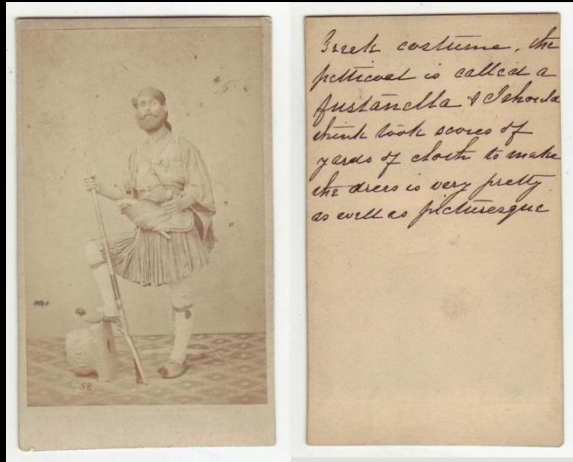 58
Greek costume, the
petticoat is called a
fustanella & I should
think took scores of
yards of cloth to make
the dress is very pretty
as well as picturesque